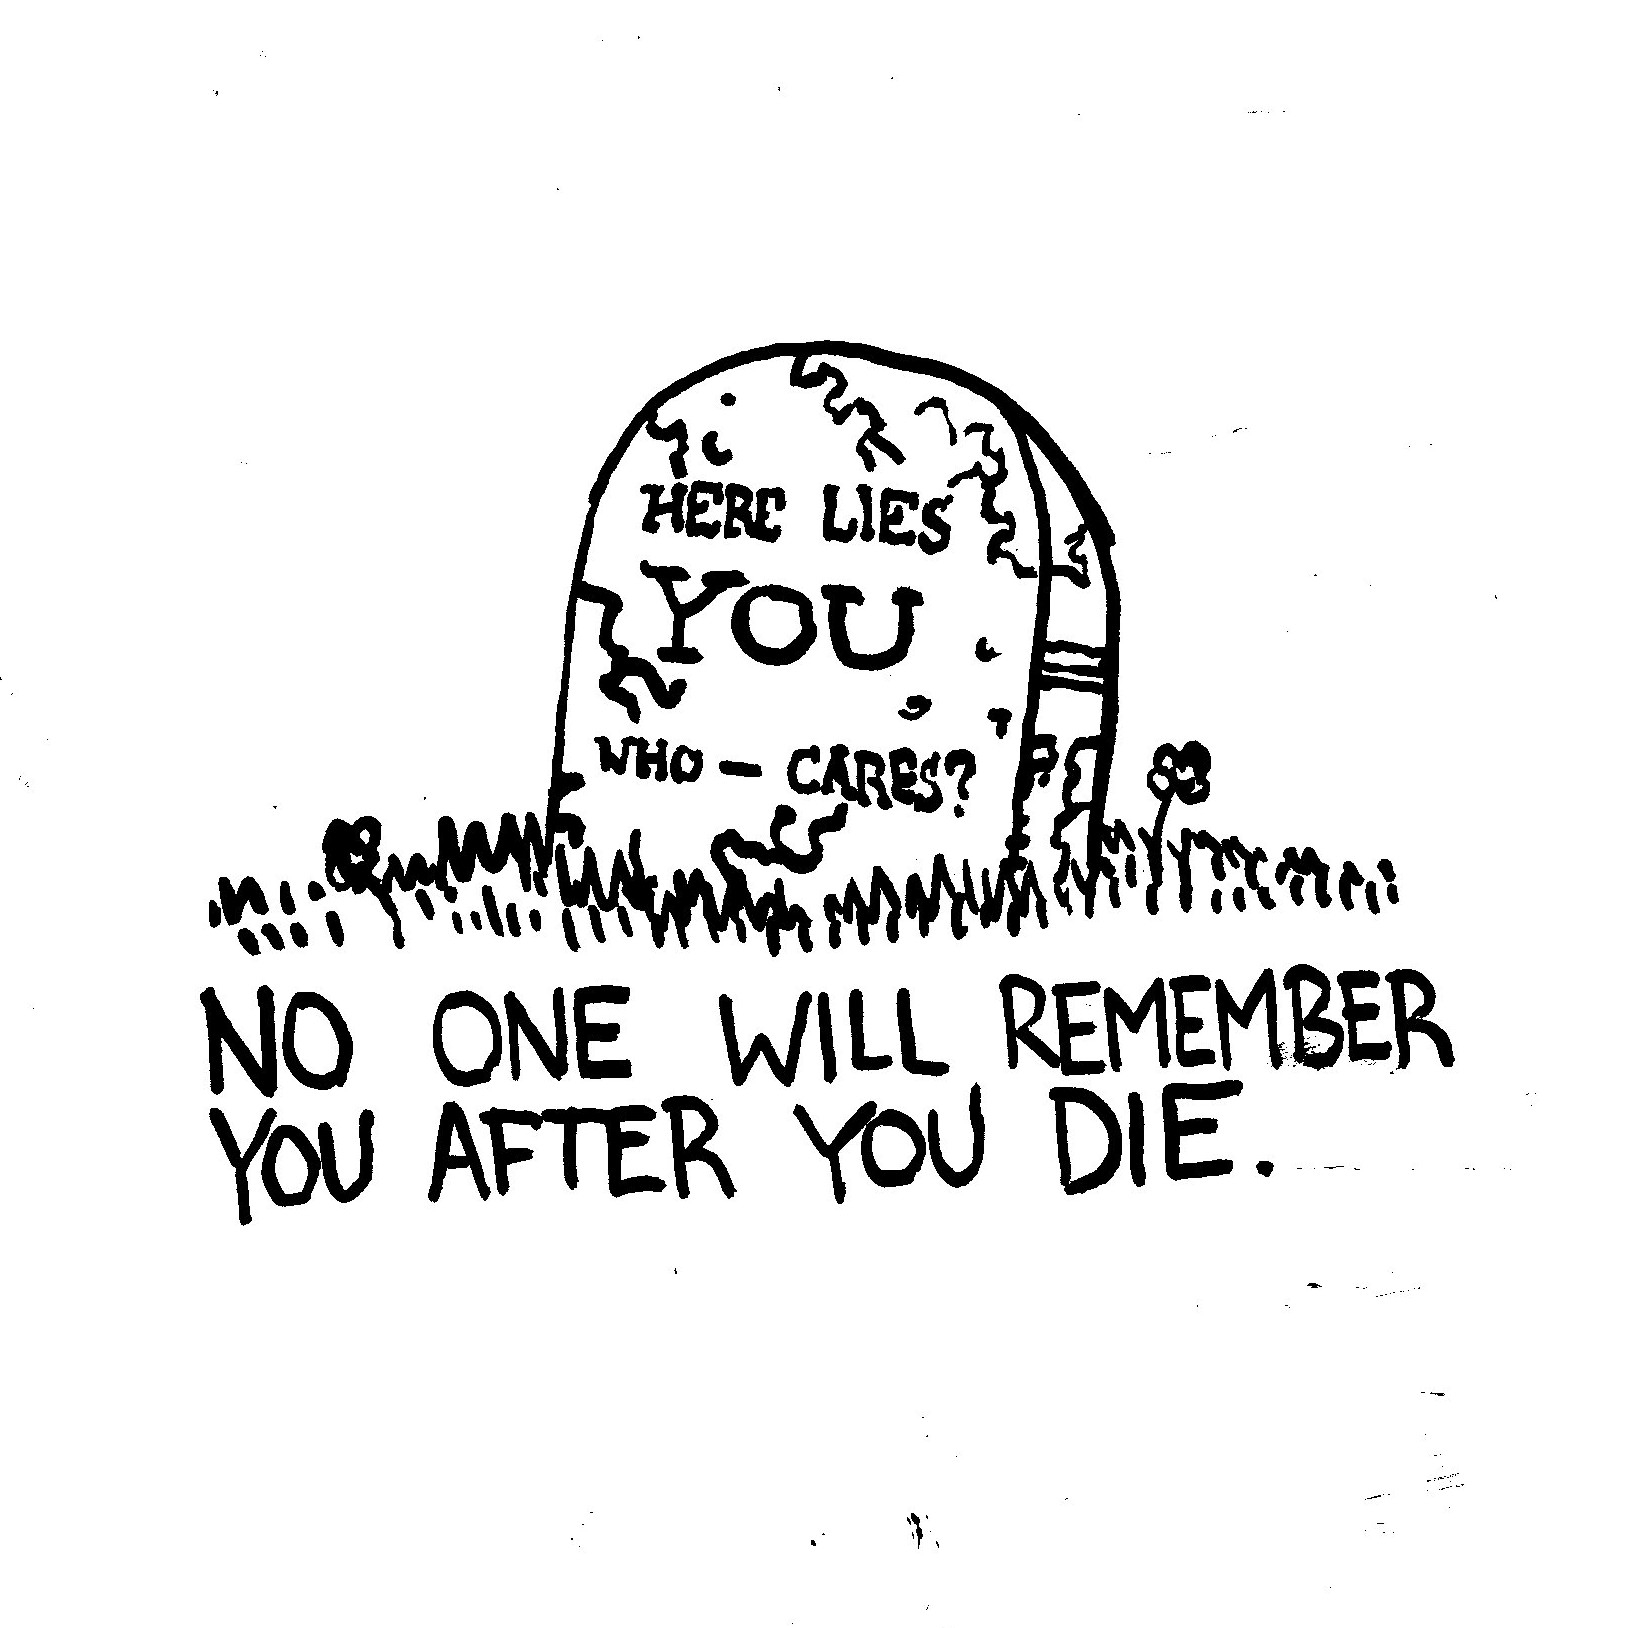 HERE LIES
YOU
WHO - CARES?
NO ONE WILL REMEMBER
YOU AFTER YOU DIE.